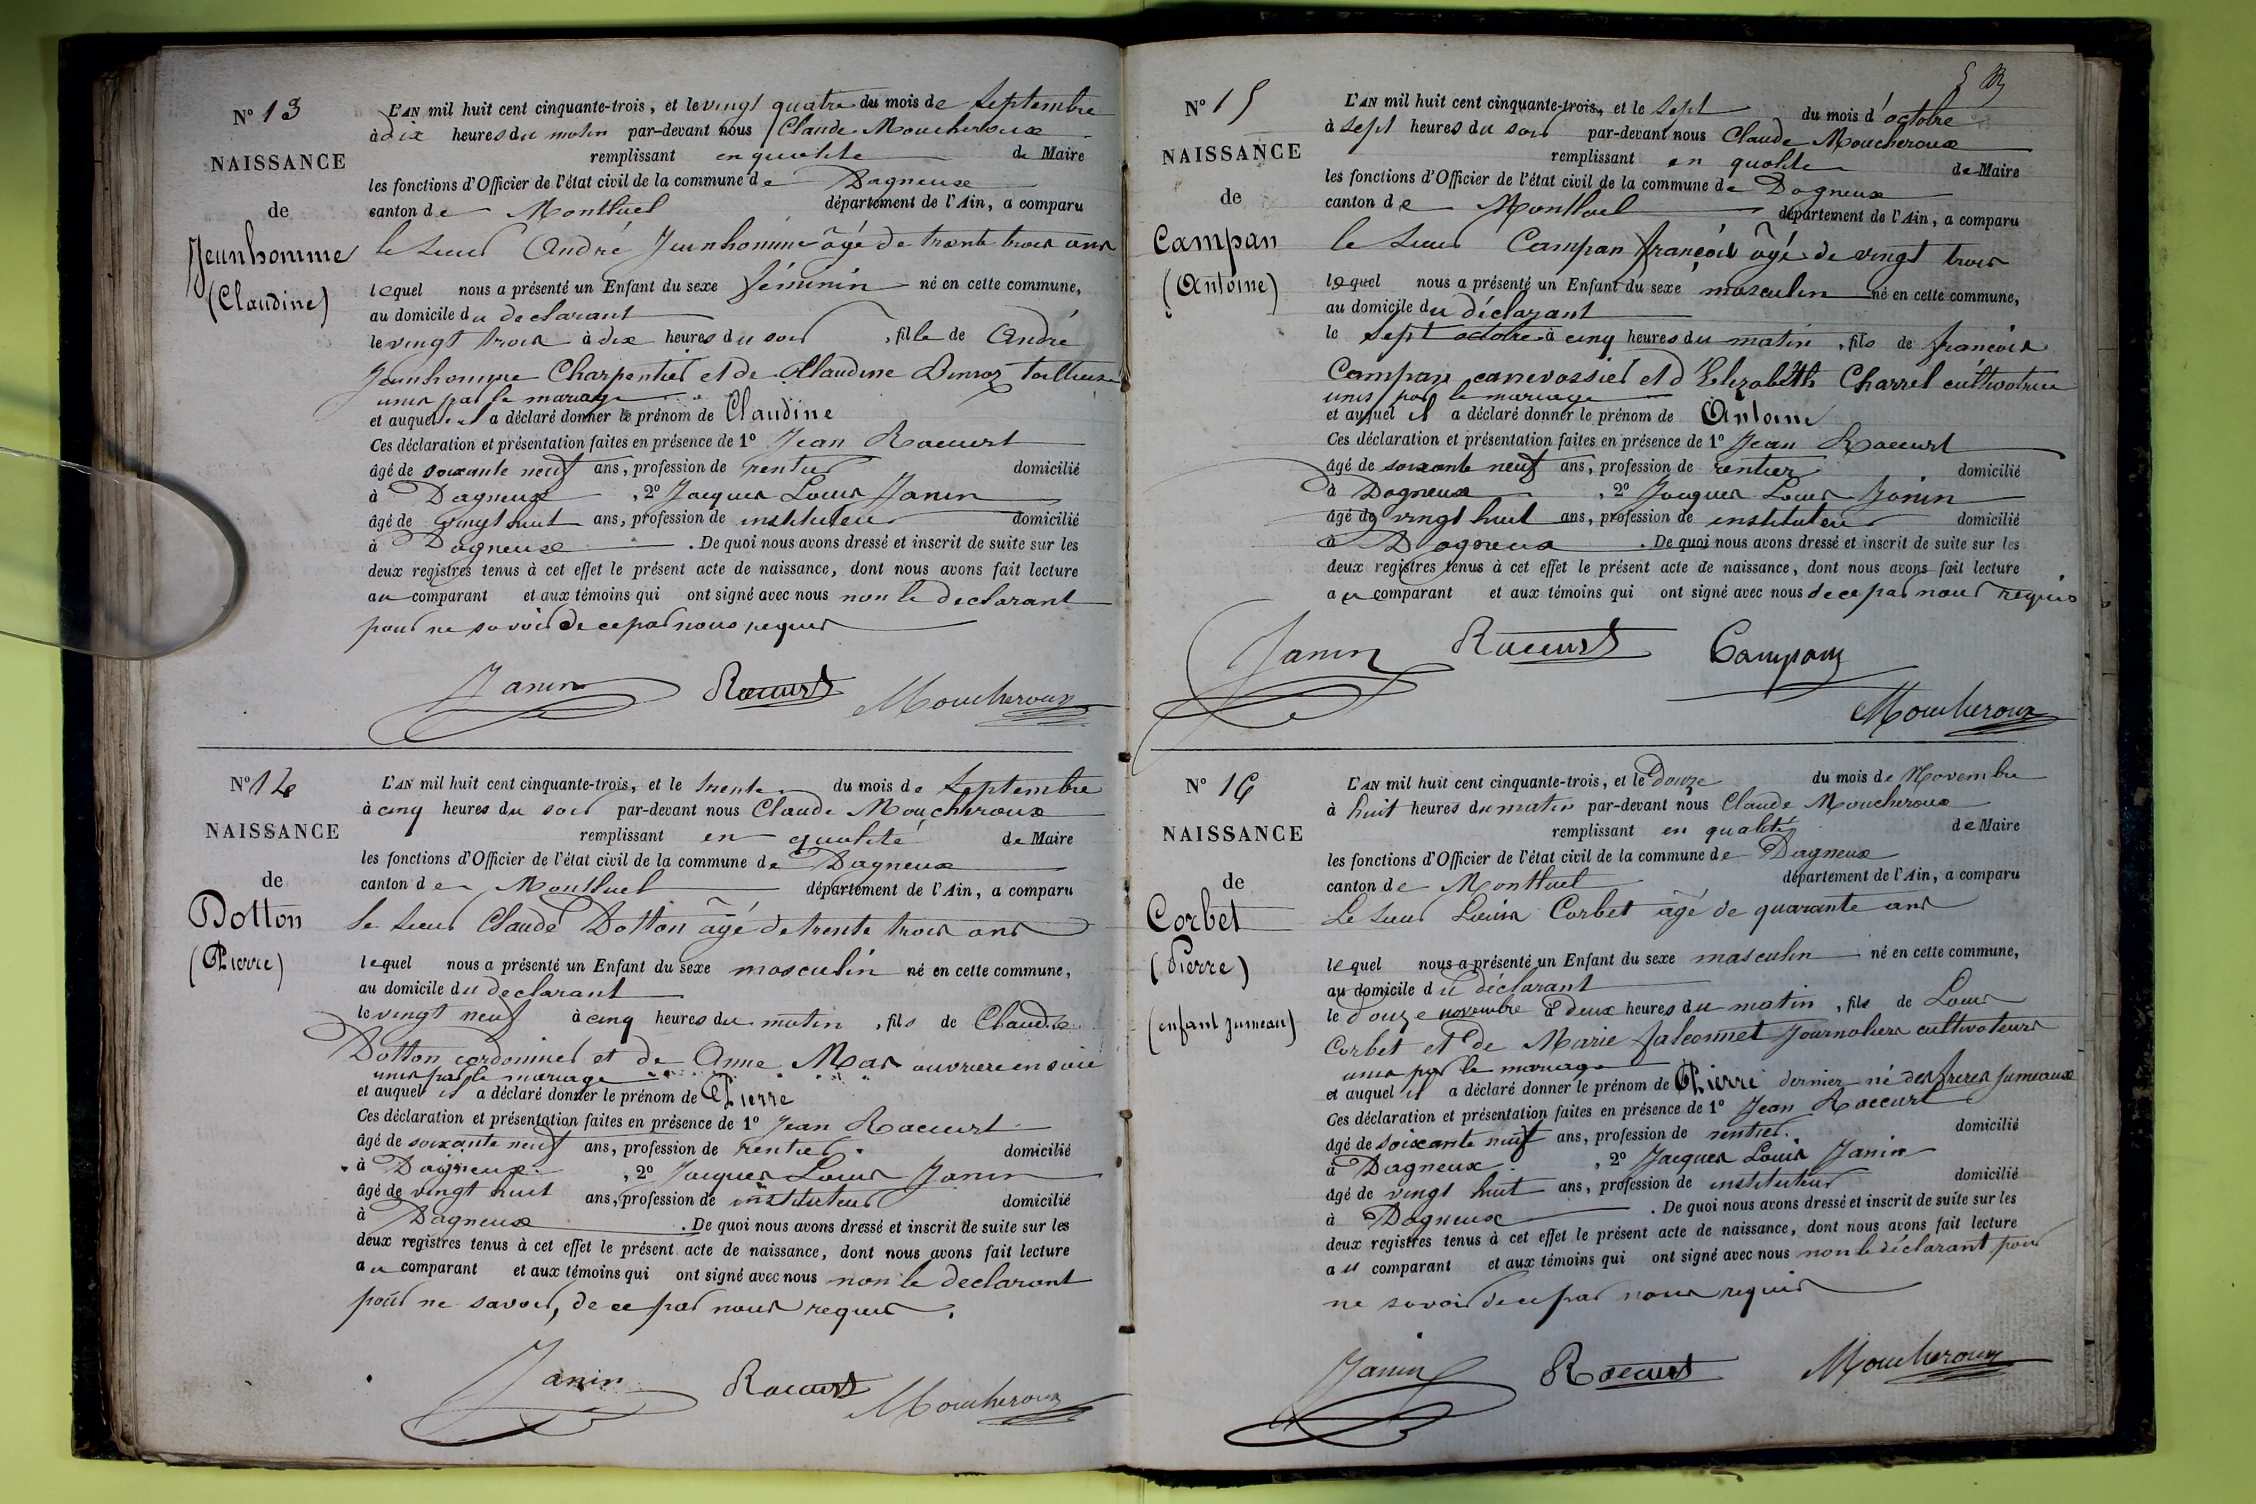 N° 13
NAISSANCE
de
Jeunhomme
(Claudine)
L'AN mil huit cent cinquante-trois, et le vingt quatre du mois de Septembre
à dix heures du matin par-devant nous Claude Moucheroux
remplissant en qualité de Maire
les fonctions d'Officier de l'état civil de la commune de Dagneux
canton de Montluel département de l'Ain, a comparu
le Sieur André Jeunhomme âgé de trente trois ans
lequel nous a présenté un Enfant du sexe féminin né en cette commune,
au domicile du declarant
le vingt trois à dix heures du soir, fille de André
Jeunhomme Charpentier et de Claudine tailleuse
unis par le mariage
et auquel il a déclaré donner le prénom de Claudine
Ces déclaration et présentation faites en présence de 1° Jean Raccurt
âgé de soixante neuf ans, profession de rentier domicilié
à Dagneux, 2° Jacques Louis Janin
âgé de vingt huit ans, profession de instituteur domicilié
à Dagneux. De quoi nous avons dressé et inscrit de suite sur les
deux registres tenus à cet effet le présent acte de naissance, dont nous avons fait lecture
au comparant et aux témoins qui ont signé avec nous non le declarant
pour ne savoir de ce par nous requis
Janin Raccurt Moucheroux
N° 14
NAISSANCE
de
Dotton
(Pierre)
L'AN mil huit cent cinquante-trois, et le trente du mois de Septembre
à cinq heures du soir par-devant nous Claude Moucheroux
remplissant en qualité de Maire
les fonctions d'Officier de l'état civil de la commune de Dagneux
canton de Montluel département de l'Ain, a comparu
le Sieur Claude Dotton âgé de trente trois ans
lequel nous a présenté un Enfant du sexe masculin né en cette commune,
au domicile du declarant
le vingt neuf à cinq heures du matin, fils de Claude
Dotton cordonnier et de Anne Mas ouvriere en soie
unis par le mariage
et auquel il a déclaré donner le prénom de Pierre
Ces déclaration et présentation faites en présence de 1° Jean Raccurt
âgé de soixante neuf ans, profession de rentier domicilié
à Dagneux, 2° Jacques Louis Janin
âgé de vingt huit ans, profession de instituteur domicilié
à Dagneux. De quoi nous avons dressé et inscrit de suite sur les
deux registres tenus à cet effet le présent acte de naissance, dont nous avons fait lecture
au comparant et aux témoins qui ont signé avec nous non le declarant
pour ne savoir, de ce par nous requis.
Janin Raccurt Moucheroux
N° 15
NAISSANCE
de
Campan
(Antoine)
L'AN mil huit cent cinquante-trois, et le Sept du mois d'octobre
à Sept heures du soir par-devant nous Claude Moucheroux
remplissant en qualité de Maire
les fonctions d'Officier de l'état civil de la commune de Dagneux
canton de Montluel département de l'Ain, a comparu
le Sieur Campan françois âgé de vingt trois
lequel nous a présenté un Enfant du sexe masculin né en cette commune,
au domicile du déclarant
le Sept octobre à cinq heures du matin, fils de françois
Campan canevassier et d'Elizabeth Charrel cultivatrice
unis par le mariage
et auquel il a déclaré donner le prénom de Antoine
Ces déclaration et présentation faites en présence de 1° Jean Raccurt
âgé de soixante neuf ans, profession de rentier domicilié
à Dagneux, 2° Jacques Louis Janin
âgé de vingt huit ans, profession de instituteur domicilié
à Dagneux. De quoi nous avons dressé et inscrit de suite sur les
deux registres tenus à cet effet le présent acte de naissance, dont nous avons fait lecture
au comparant et aux témoins qui ont signé avec nous de ce par nous requis
Janin Raccurt Campan
Moucheroux
N° 16
NAISSANCE
de
Corbet
(Pierre)
(enfant jumeau)
L'AN mil huit cent cinquante-trois, et le Douze du mois de Novembre
à huit heures du matin par-devant nous Claude Moucheroux
remplissant en qualité de Maire
les fonctions d'Officier de l'état civil de la commune de Dagneux
canton de Montluel département de l'Ain, a comparu
Le Sieur Louis Corbet âgé de quarante ans
lequel nous a présenté un Enfant du sexe masculin né en cette commune,
au domicile du déclarant
le Douze novembre à deux heures du matin, fils de Louis
Corbet et de Marie falconnet Journaliers cultivateurs
unis par le mariage
et auquel il a déclaré donner le prénom de Pierre dernier né des freres jumeaux
Ces déclaration et présentation faites en présence de 1° Jean Raccurt
âgé de soixante neuf ans, profession de rentier domicilié
à Dagneux, 2° Jacques Louis Janin
âgé de vingt huit ans, profession de instituteur domicilié
à Dagneux. De quoi nous avons dressé et inscrit de suite sur les
deux registres tenus à cet effet le présent acte de naissance, dont nous avons fait lecture
au comparant et aux témoins qui ont signé avec nous non le déclarant pour
ne savoir de ce par nous requis
Janin Raccurt Moucheroux